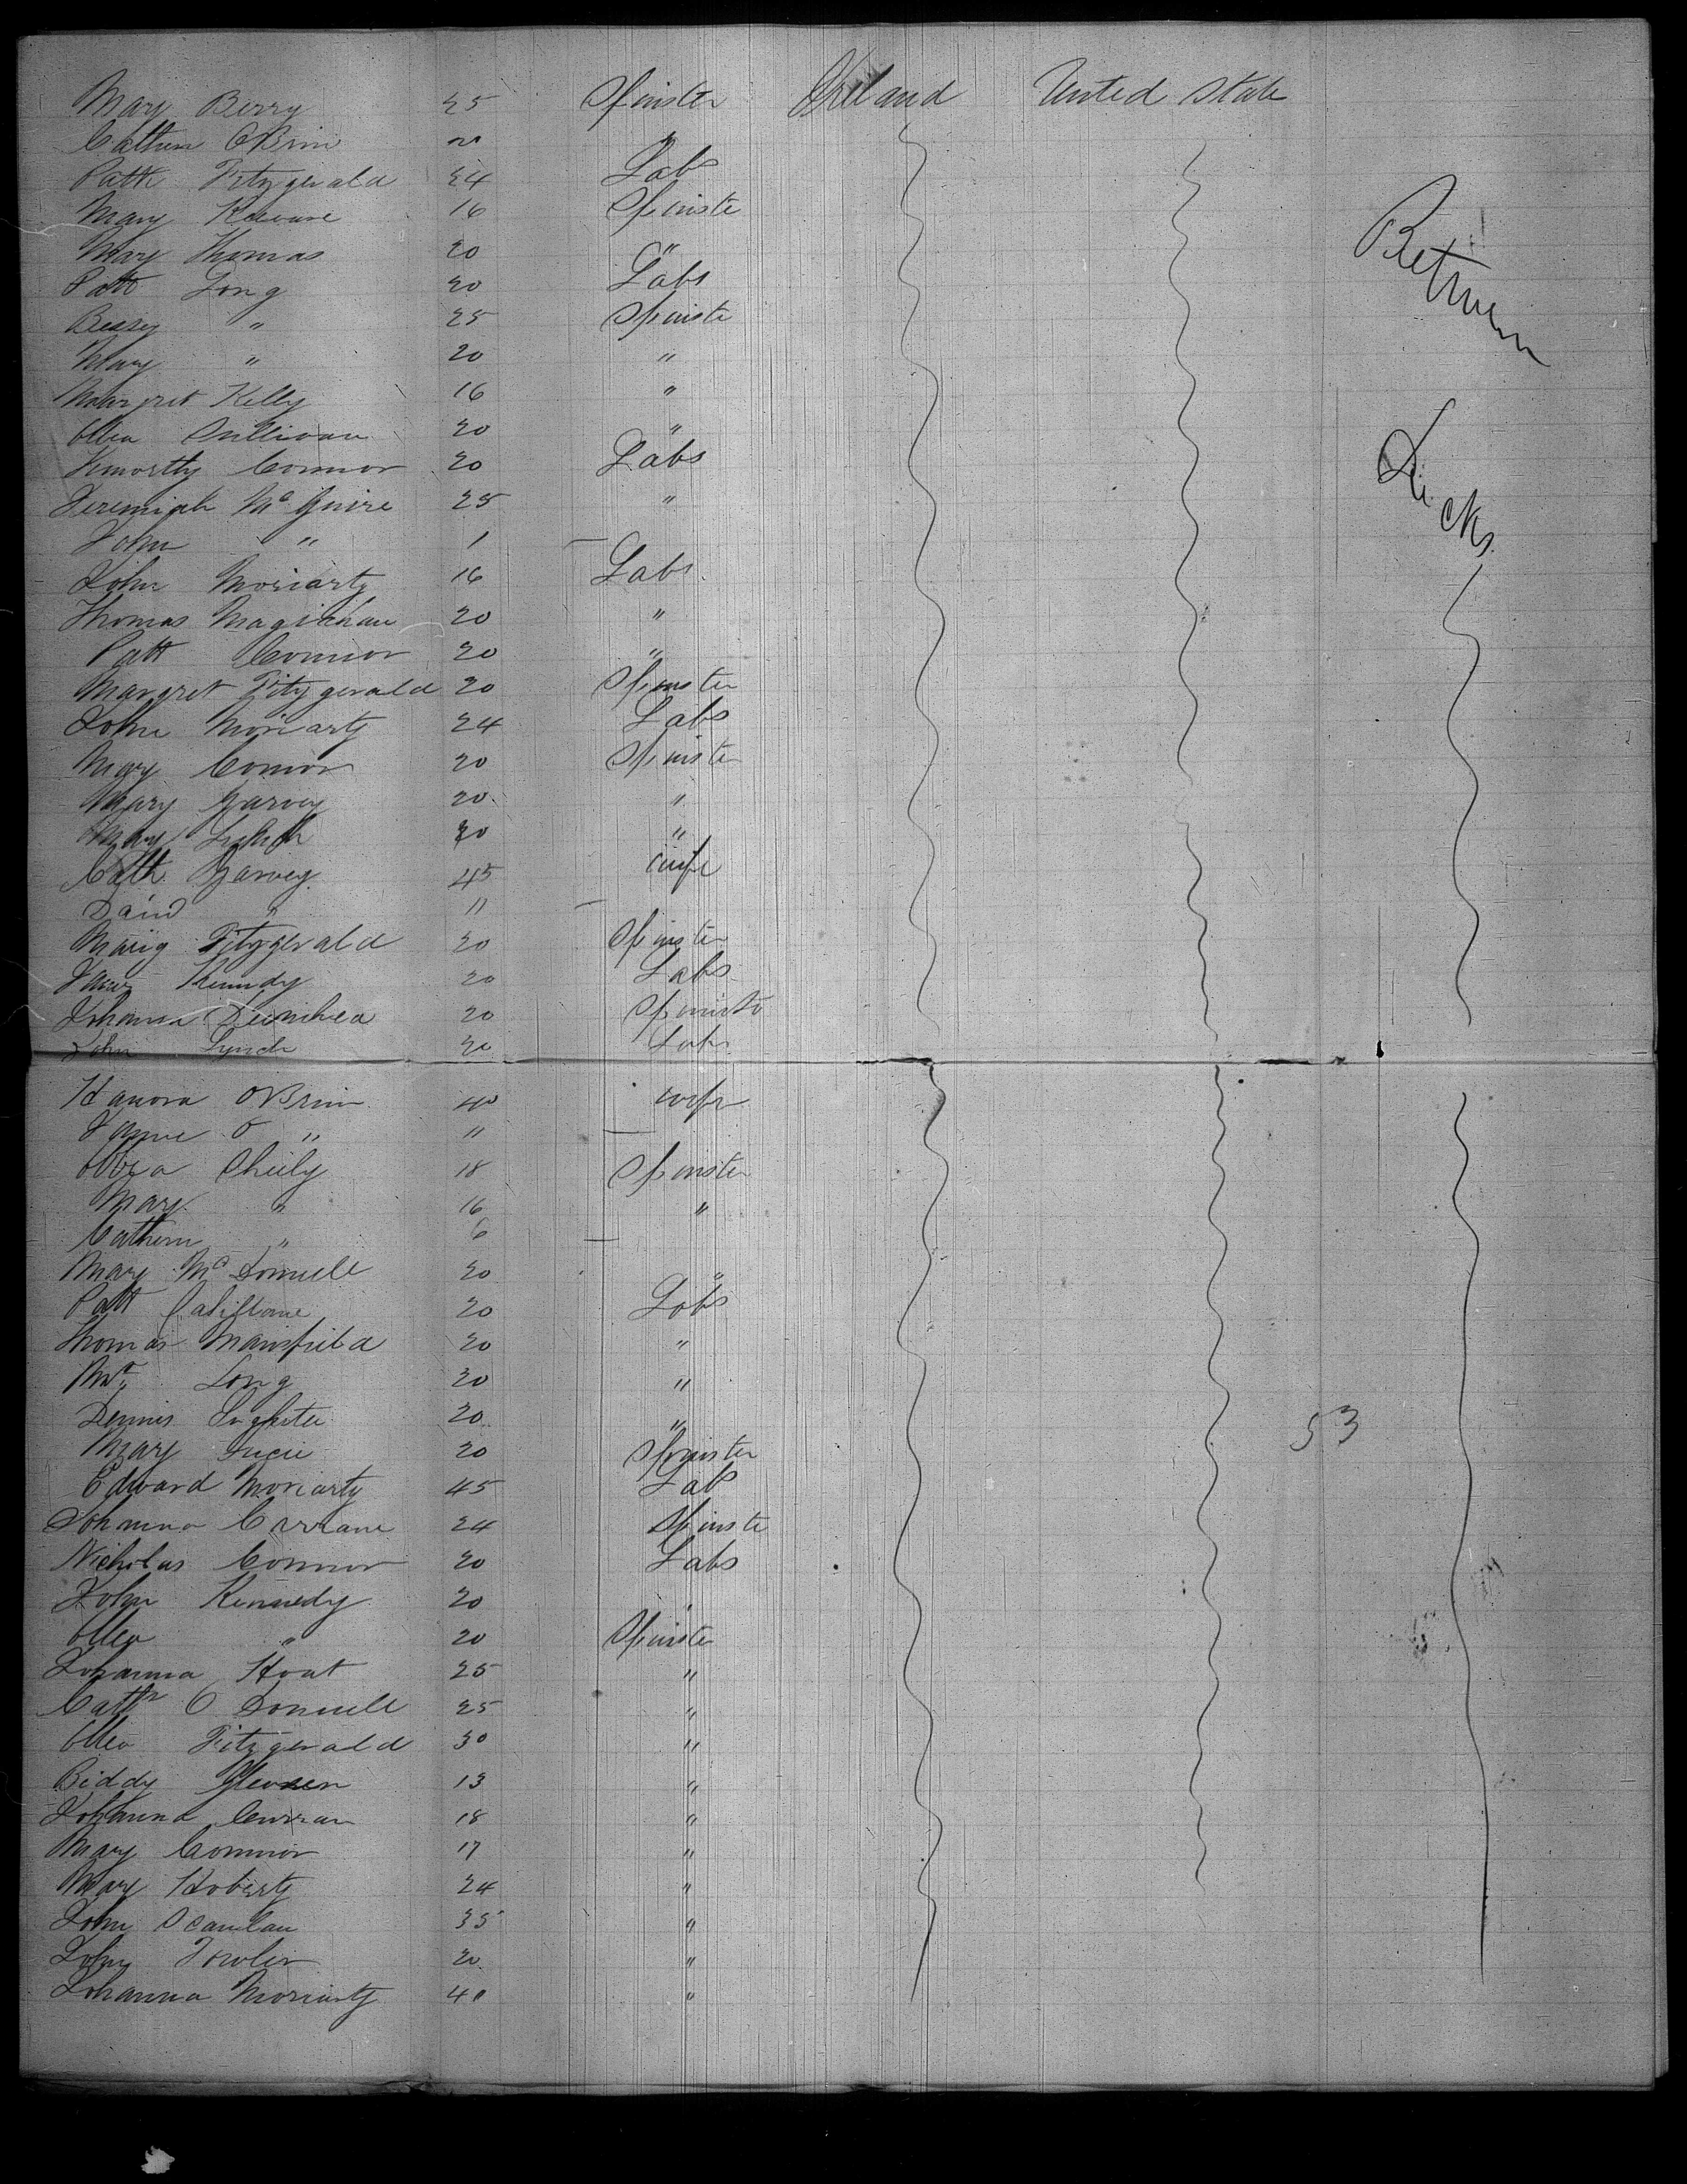 Mary Berry 25 Spinster Ireland United State
Cathern OBrin "
Patk Fitzgerald 24 Lab
Mary 16 Spinste
Mary Thomas 20 "
Patt Long 20 Labs
Bessy " 25 Spinste
Mary " 20 "
Margret Kelly 16 "
Ellen Sullivan 20 "
Timorthy Connor 20 Labs
Jeremiah Mc Guire 25 "
John " 1 —
John Moriarty 16 Labs
Thomas 20 "
Patt Connor 20 "
Margret Fitzgerald 20 Spinster
John Moriarty 24 Labs
Mary Connor 20 Spinster
Mary Garvey 20 "
Mary 20 "
Cath Garvey 45 wife
David " 11 —
Fitzgerald 20 Spinster
Kennedy 20 Labs
Johanna 20 Spinste
John Lynch 20 Labs
Hanora OBrin 40 wife
O " 11 —
Ellen Sheily 18 Spinster
Mary " 16 "
Cathern " 6 —
Mary Mc Donnell 20 "
Patt 20 Labs
Thomas Mansfield 20 "
Long 20 "
Dennis 20 "
Mary 20 Spinster
Edward Moriarty 45 Lab
Johanna Currane 24 Spinste
Nicholas Connor 20 Labs
John Kennedy 20 "
Ellen " 20 Spinster
Johanna Hoat 25 "
Cathn O Donnell 25 "
Ellen Fitzgerald 30 "
Biddy 13 "
Johanna Curran 18 "
Mary Connor 17 "
Mary Hoberty 24 "
John Scanlan 35 "
John Fowler 20 "
Johanna Moriarty 40 "
Between
Decks
53